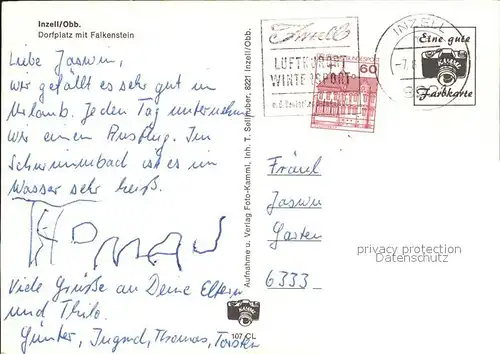 Inzell/Obb.
Dorfplatz mit Falkenstein
Liebe Jasmin,
mir gefällt es sehr gut im
Urlaub. Jeden Tag unternehmen
wir einen Ausflug. Im
Schwimmbad ist es im
Wasser sehr heiß.
Thomas
Viele Grüße an Deine Eltern
und Thilo.
Günter, Ingrid, Thomas, Torsten
Aufnahme u. Verlag Foto-Kamml, Inh. T. Sellhuber, 8221 Inzell/Obb.
107 CL
Inzell
LUFTKURORT
WINTERSPORT
DEUTSCHE BUNDESPOST
60
INZELL
-7.
Eine gute
KAMML
Farbkarte
Fräul.
Jasmin
Garten
6333
privacy protection
Datenschutz